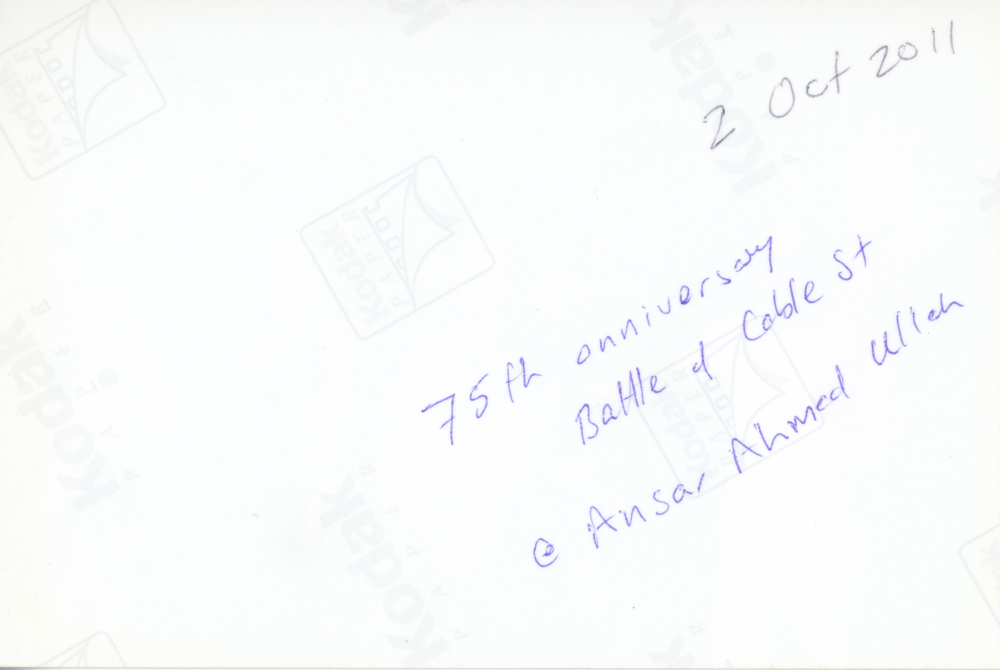 2 Oct 2011
75th anniversary
Battle of Cable St
@ Ansar Ahmed Ullah
Kodak
PAPER
Kodak
PAPER
Kodak
PAPER
Kodak
PAPER
Kodak
PAPER
Kodak
PAPER